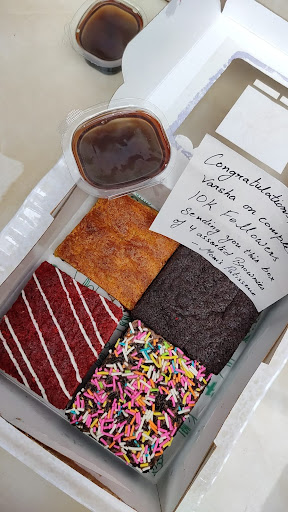 Congratulations
Vansha on comple
10K Followers
Sending you this box
of 4 assorted Brownies